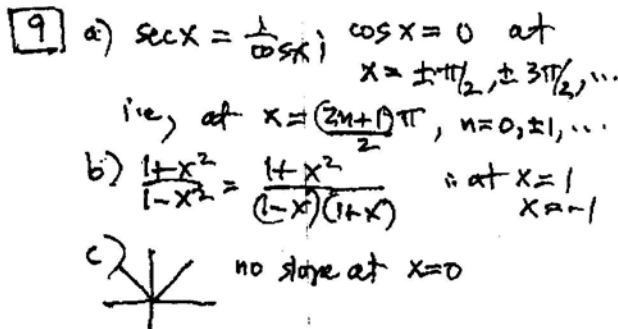 9 a) sec x = 1/cos x ; cos x = 0 at
x = ±π/2, ±3π/2, ...
i.e, at x = (2n+1)π/2, n=0, ±1, ...
b) 1+x²/1-x² = 1+x²/(1-x)(1+x) ∴ at x=1
x=-1
c) no slope at x=0